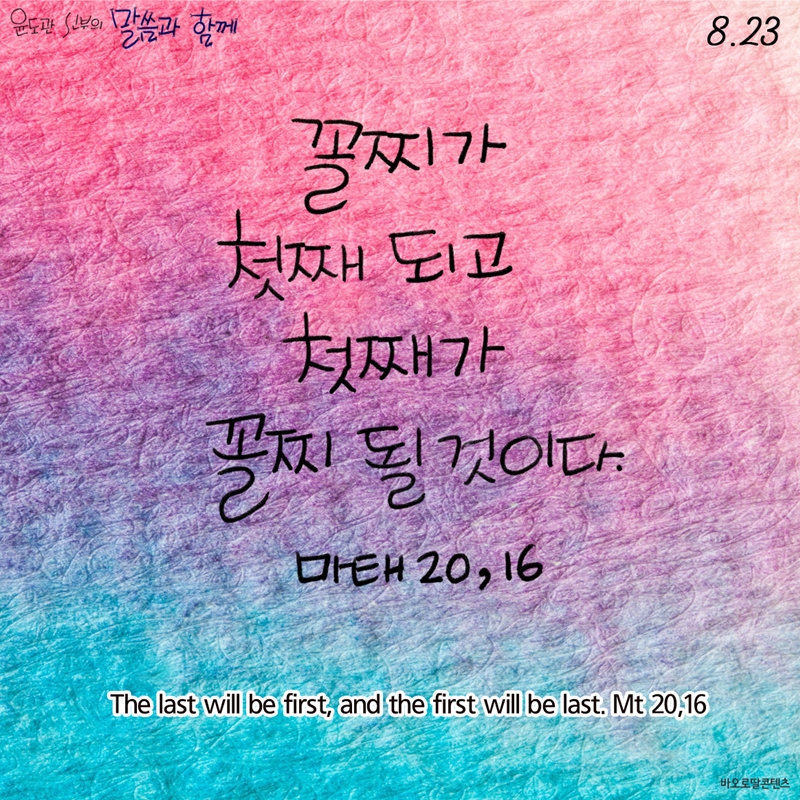 윤도관 신부의 말씀과 함께
8.23
꼴찌가
첫째 되고
첫째가
꼴찌 될 것이다.
마태 20,16
The last will be first, and the first will be last. Mt 20,16
바오로딸콘텐츠